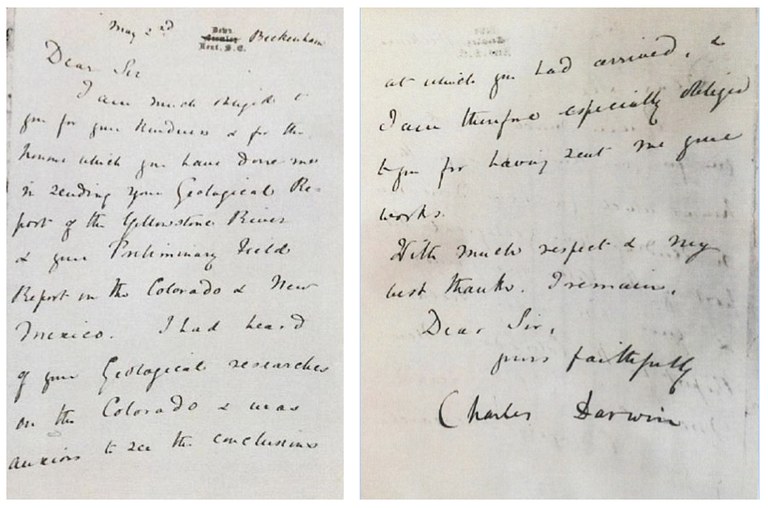 May 2nd
Down,
Beckenham
Kent, S.E.
Dear Sir
I am much obliged to
you for your kindness & for the
honour which you have done me
in sending your Geological Re-
port of the Yellowstone River
& your Preliminary Field
Report on the Colorado & New
Mexico. I had heard
of your Geological researches
on the Colorado & was
anxious to see the conclusions
at which you had arrived, &
I am therefore especially obliged
to you for having sent me your
works.
With much respect & my
best thanks. I remain,
Dear Sir,
yours faithfully
Charles Darwin